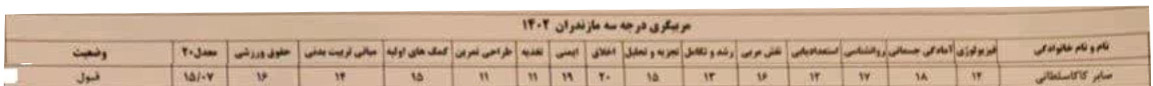 مربیگری درجه سه مازندران ۱۴۰۲
نام و نام خانوادگی فیزیولوژی آمادگی جسمانی روانشناسی استعدادیابی نقش مربی رشد و تکامل تجزیه و تحلیل اخلاق ایمنی تغذیه طراحی تمرین کمک های اولیه مبانی تربیت بدنی حقوق ورزشی معدل۲۰ وضعیت
صابر کاکاسلطانی ۱۴ ۱۸ ۱۷ ۱۲ ۱۶ ۱۳ ۱۵ ۲۰ ۱۹ ۱۱ ۱۱ ۱۵ ۱۴ ۱۶ ۱۵/۰۷ قبول